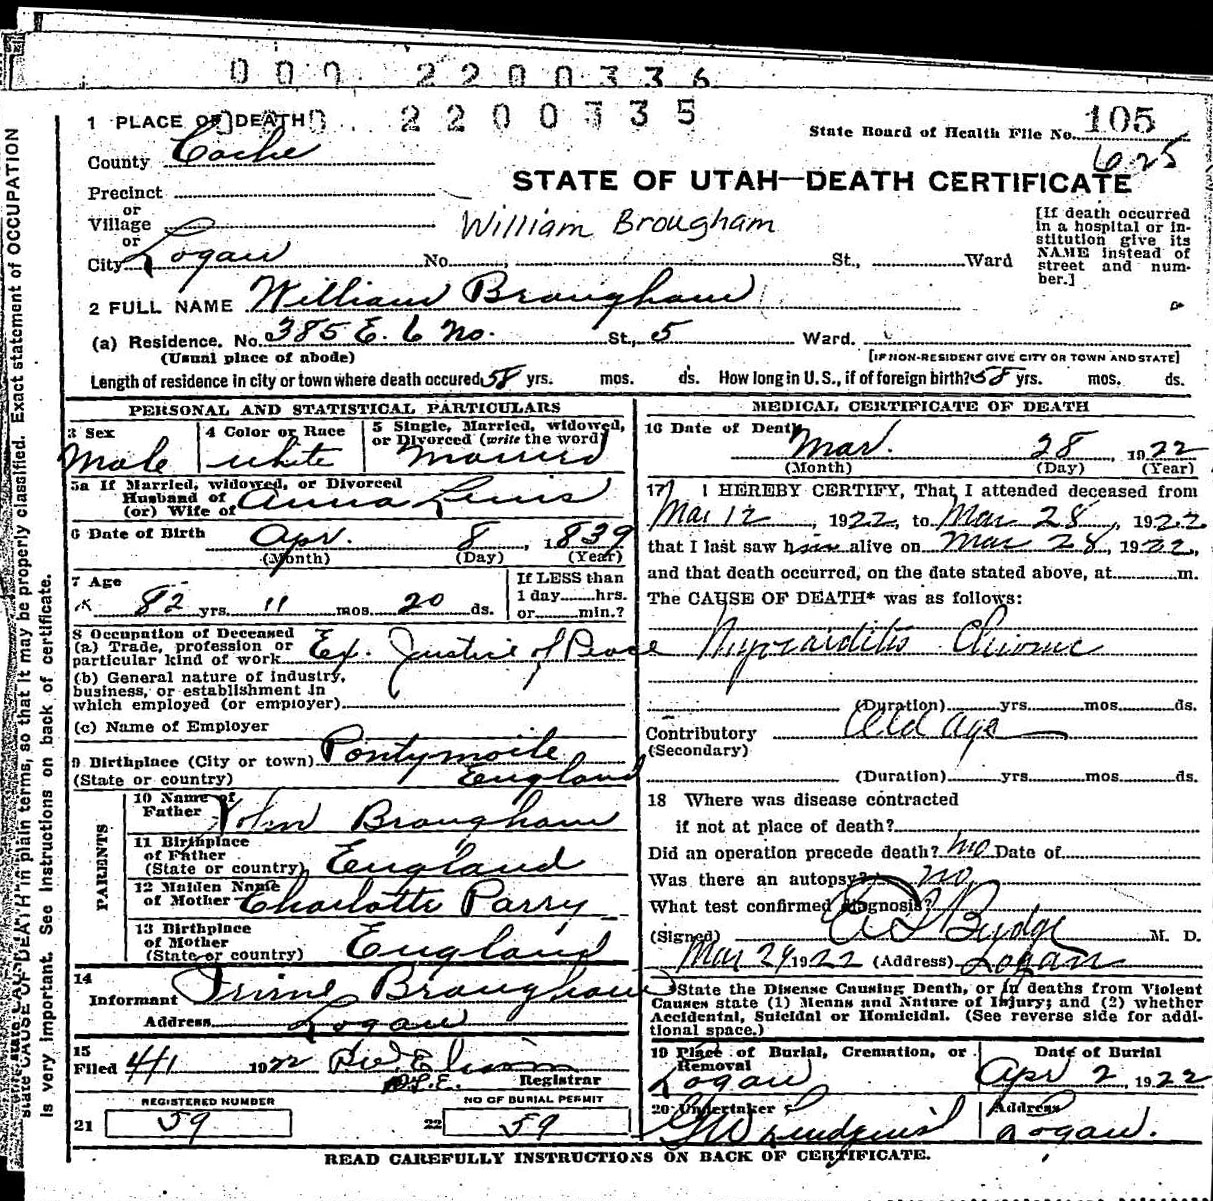 000 2200336
000. 2200335
1 PLACE OF DEATH
State Board of Health File No. 105
625
County Cache
STATE OF UTAH—DEATH CERTIFICATE
Precinct
or
Village
William Brougham
or
City Logan No. St., Ward
[If death occurred
in a hospital or in-
stitution give its
NAME instead of
street and num-
ber.]
2 FULL NAME William Brougham
(a) Residence. No. 385 E. 6 No. St., 5 Ward.
(Usual place of abode)
[IF NON-RESIDENT GIVE CITY OR TOWN AND STATE]
Length of residence in city or town where death occured 58 yrs. mos. ds. How long in U.S., if of foreign birth? 58 yrs. mos. ds.
PERSONAL AND STATISTICAL PARTICULARS
3 Sex
Male
4 Color or Race
white
5 Single, Married, widowed,
or Divorced (write the word)
Married
5a If Married, widowed, or Divorced
Husband of
(or) Wife of Anna Lewis
6 Date of Birth Apr. 8, 1839
(Month) (Day) (Year)
7 Age
82 yrs. 11 mos. 20 ds.
If LESS than
1 day hrs.
or min.?
8 Occupation of Deceased
(a) Trade, profession or
particular kind of work Ex. Justice of Peace
(b) General nature of industry,
business, or establishment in
which employed (or employer)
(c) Name of Employer
9 Birthplace (City or town) Pontymoile
(State or country) England
PARENTS
10 Name of
Father John Brougham
11 Birthplace
of Father
(State or country) England
12 Maiden Name
of Mother Charlotte Parry
13 Birthplace
of Mother
(State or country) England
14
Informant Brougham
Address Logan
15
Filed 4/1 1922
Registrar
REGISTERED NUMBER
21 59
NO OF BURIAL PERMIT
22 59
MEDICAL CERTIFICATE OF DEATH
16 Date of Death Mar. 28, 1922
(Month) (Day) (Year)
17 I HEREBY CERTIFY, That I attended deceased from
Mar 12, 1922, to Mar 28, 1922
that I last saw him alive on Mar 28, 1922,
and that death occurred, on the date stated above, at m.
The CAUSE OF DEATH* was as follows:
Myocarditis Chronic
(Duration) yrs. mos. ds.
Contributory Old age
(Secondary)
(Duration) yrs. mos. ds.
18 Where was disease contracted
if not at place of death?
Did an operation precede death? no Date of
Was there an autopsy? no
What test confirmed diagnosis?
(Signed) Budge M. D.
Mar 29 1922 (Address) Logan
*State the Disease Causing Death, or in deaths from Violent
Causes state (1) Means and Nature of Injury; and (2) whether
Accidental, Suicidal or Homicidal. (See reverse side for addi-
tional space.)
19 Place of Burial, Cremation, or
Removal
Logan
Date of Burial
Apr 2, 1922
20 Undertaker
Lindquist
Address
Logan.
READ CAREFULLY INSTRUCTIONS ON BACK OF CERTIFICATE.
state CAUSE OF DEATH in plain terms, so that it may be properly classified. Exact statement of OCCUPATION
is very important. See instructions on back of certificate.